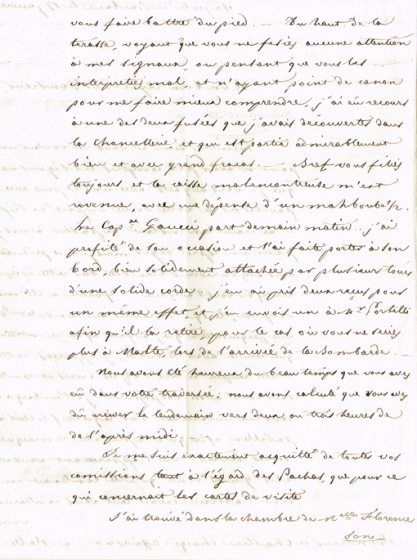 vous faire battre du pied. — Du haut de la
terasse, voyant que vous ne fesiez aucune attention
à mes signaux, ou pensant que vous les
interpretiez mal et n'ayant point de canon
pour me faire mieux comprendre, j'ai eu recours
à une des deux fusées que j'avais découvertes dans
la Chancellerie et qui est partie admirablement
bien et avec grand fracas. — Bref vous filiez
toujours, et la caisse malencontreuse m'est
revenue, avec une dépense d'un mahboub ½.
Le Cap.ne Gaucci part demain matin. j'ai
profité de son occasion et l'ai faite porter à son
bord, bien solidement attachée par plusieurs tours
d'une solide corde. j'en ai pris deux reçus pour
un même effet, et j'en envois un à Mr Portelli
afin qu'il la retire, pour le cas où vous ne seriez
plus à Malte, lors de l'arrivée de la Bombarde. —
Nous avons été heureux du beau temps que vous avez
eû dans votre traversée; nous avons calculé que vous avez
dû arriver le lendemain vers deux ou trois heures de
de l'après midi.
Je me suis exactement acquitté de toutes vos
comissions tant à l'égard des Pachas, que pour ce
qui concernait les cartes de visite
J'ai trouvé dans la chambre de Mlle Florence